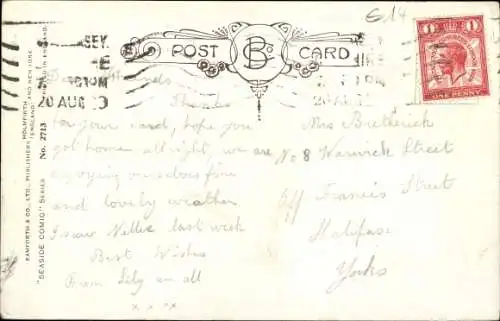 614
POST CARD
B Co
1 1
ONE PENNY
20 AUG
20 AU
BAMFORTH & CO., LTD., PUBLISHERS, HOLMFIRTH (ENGLAND) AND NEW YORK
PRINTED IN ENGLAND
"SEASIDE COMIC" SERIES No. 2713
Dear Friends
Thanks
for your card, hope you
got home all right, we are
enjoying ourselves fine
and lovely weather
I saw Nellie last week
Best Wishes
From Lily an all
x x x x
Mrs Bretherick
No 8 Warwick Street
Off Francis Street
Halifax
Yorks